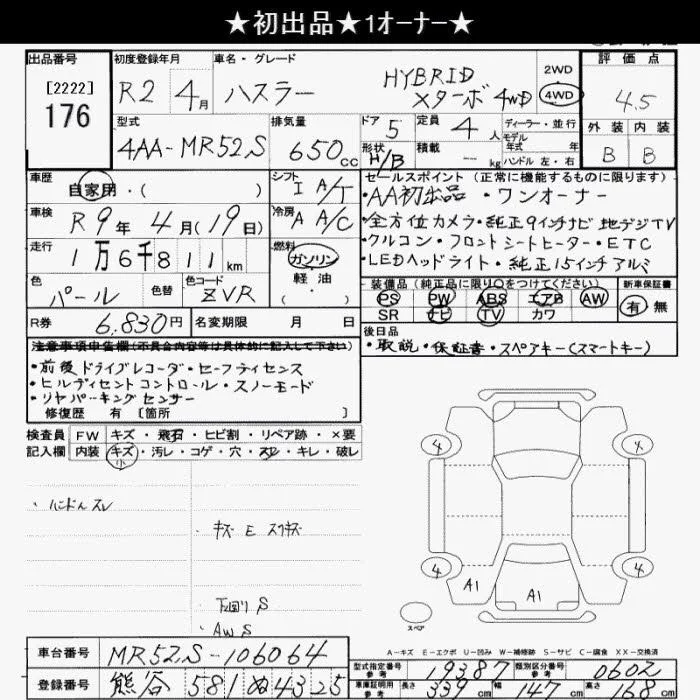 ★初出品★1オーナー★
出品番号 初度登録年月 車名・グレード 評価点
[2222]
176
R2年 4月 ハスラー HYBRID Xターボ 4WD 2WD 4WD 4.5
型式 排気量 ドア 定員 ディーラー・並行 外装 内装
4AA-MR52S 650cc 5 4人 モデル年式 年 B B
形状 H/B 積載 -- kg ハンドル 左・右
車歴 自家用・( ) シフト I A/T
セールスポイント(正常に機能するものに限ります)
・AA初出品・ワンオーナー
車検 R9年 4月(19日) 冷房 A A/C
・全方位カメラ・純正9インチナビ 地デジTV
走行 1万6千811km 燃料 ガソリン 軽油
・クルコン・フロントシートヒーター・ETC
・LEDヘッドライト・純正15インチアルミ
色 パール 色替 色コード ZVR
装備品(純正品に限り○をつけてください) 新車保証書
PS PW ABS エアB AW 有・無
SR ナビ TV カワ
R券 6,830円 名変期限 月 日
後日品
・取説・保証書・スペアキー(スマートキー)
注意事項申告欄(不具合内容等は具体的に記入して下さい)
・前後ドライブレコーダ・セーフティセンス
・ヒルディセントコントロール・スノーモード
・リヤパーキングセンサー
修復歴 有 [箇所 ]
検査員 FW キズ・飛石・ヒビ割・リペア跡・×要
記入欄 内装 キズ・汚レ・コゲ・穴・スレ・キレ・破レ
小
ハンドルスレ
キズ E スリキズ
下廻り S
AW S
4 4
4 4
A1 A1
スペア
A-キズ E-エクボ U-凹み W-補修跡 S-サビ C-腐食 XX-交換済
車台番号 MR52S-106064
型式指定番号 参考 19387 類別区分番号 参考 0602
登録番号 熊谷 581 ぬ 4325
車庫証明用 参考 長さ 339cm 幅 147cm 高さ 168cm